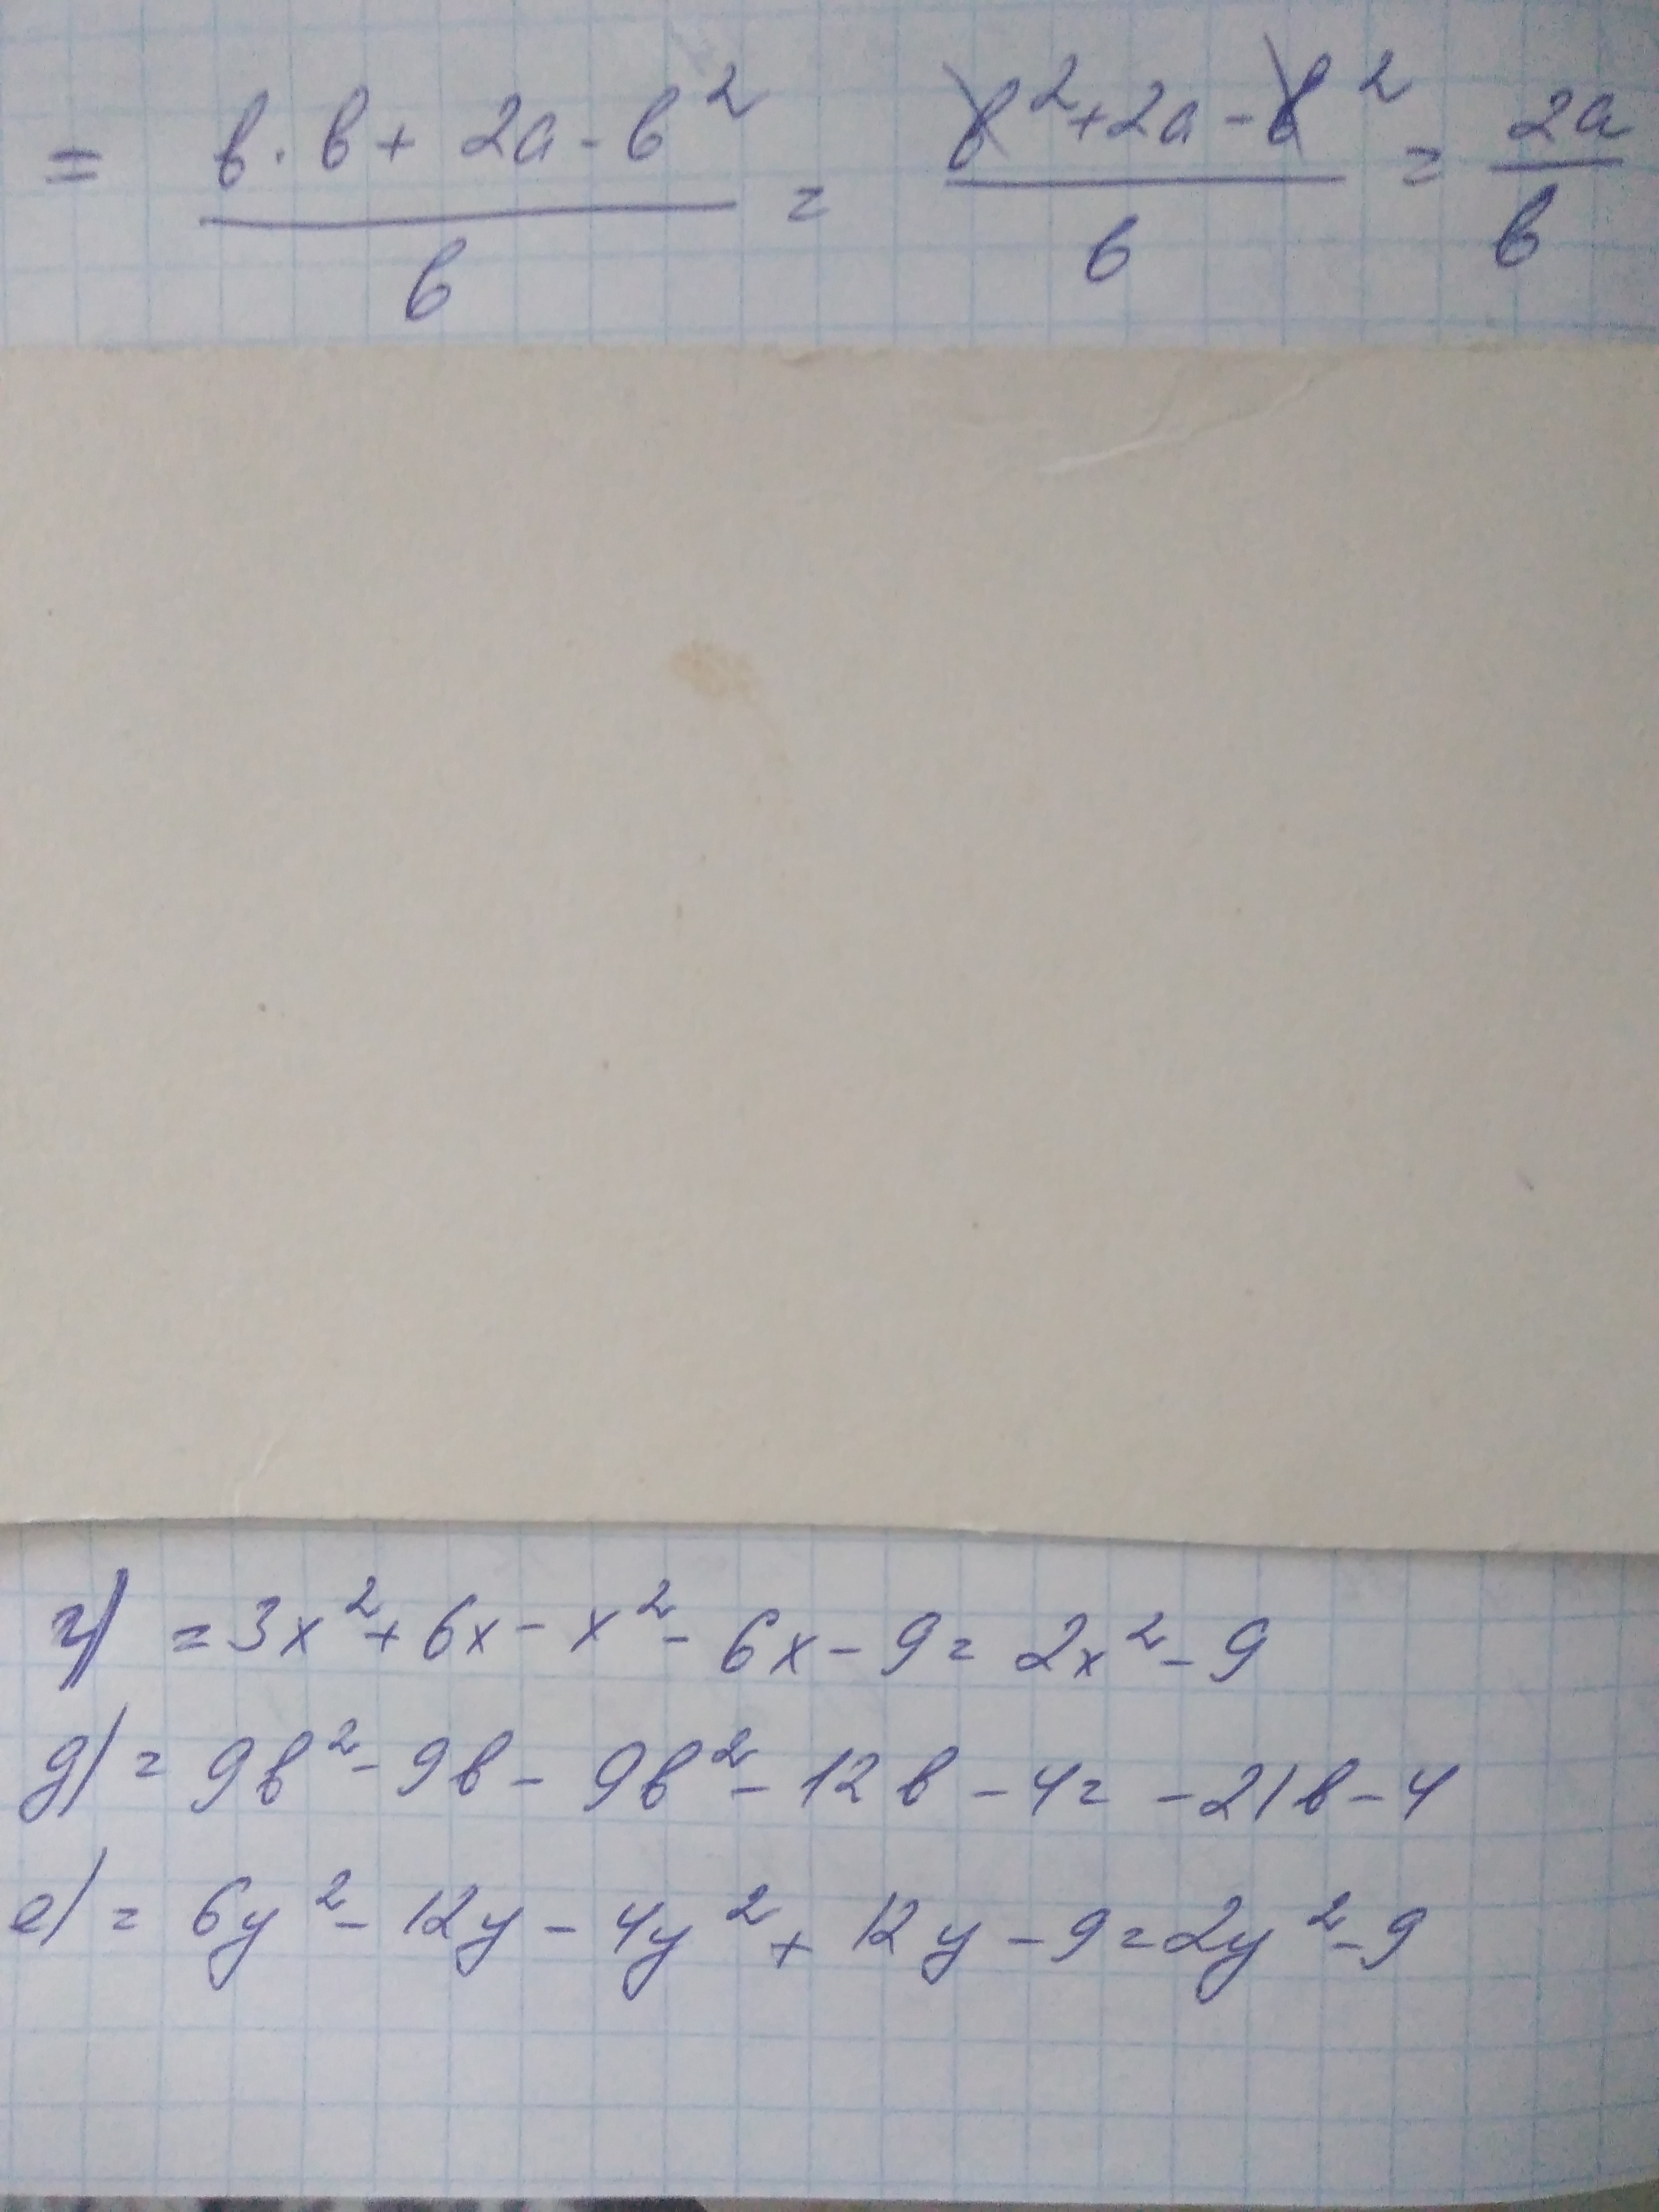 = (b · b + 2a - b²)/b = (b² + 2a - b²)/b = 2a/b
г) = 3x² + 6x - x² - 6x - 9 = 2x² - 9
д) = 9b² - 9b - 9b² - 12b - 4 = -21b - 4
е) = 6y² - 12y - 4y² + 12y - 9 = 2y² - 9